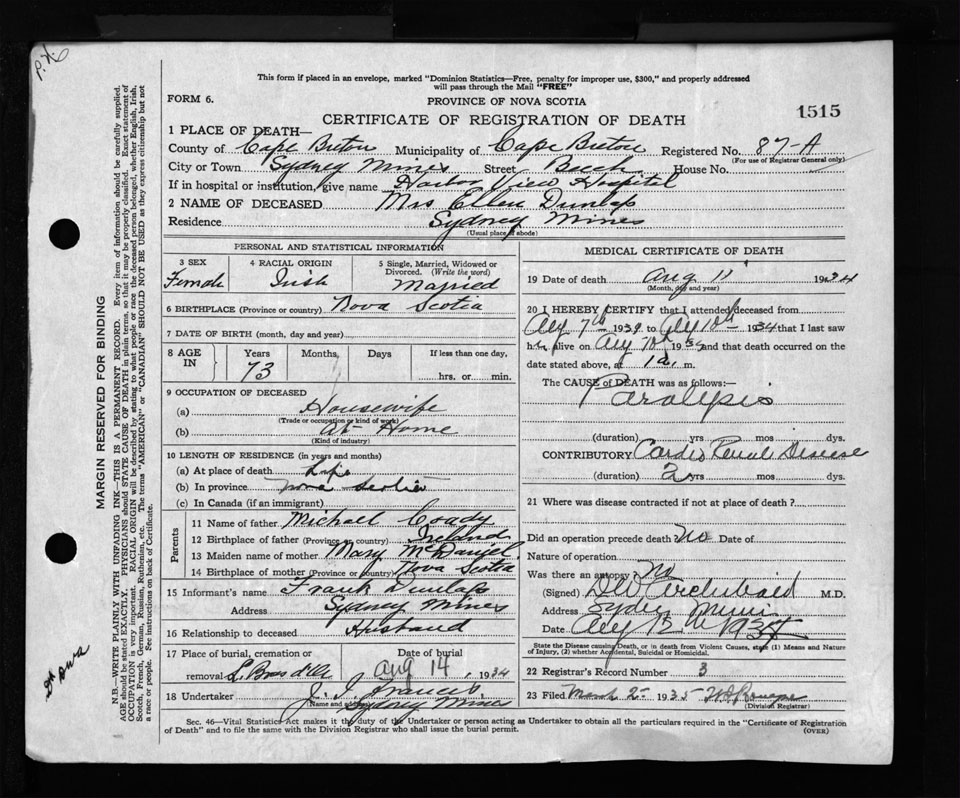 This form if placed in an envelope, marked "Dominion Statistics—Free, penalty for improper use, $300," and properly addressed
will pass through the Mail "FREE"
FORM 6.
PROVINCE OF NOVA SCOTIA
1515
CERTIFICATE OF REGISTRATION OF DEATH
1 PLACE OF DEATH—
County of Cape Breton Municipality of Cape Breton Registered No. 87-A
(For use of Registrar General only)
City or Town Sydney Mines Street Beech House No.
If in hospital or institution, give name Harbor View Hospital
2 NAME OF DECEASED Mrs Ellen Dunlap
Residence Sydney Mines
(Usual place of abode)
PERSONAL AND STATISTICAL INFORMATION
3 SEX Female
4 RACIAL ORIGIN Irish
5 Single, Married, Widowed or Divorced. (Write the word) Married
6 BIRTHPLACE (Province or country) Nova Scotia
7 DATE OF BIRTH (month, day and year)
8 AGE IN Years 73 Months, Days If less than one day, hrs. or min.
9 OCCUPATION OF DECEASED
(a) Housewife
(Trade or occupation or kind of work)
(b) At Home
(Kind of industry)
10 LENGTH OF RESIDENCE (in years and months)
(a) At place of death Life
(b) In province Nova Scotia
(c) In Canada (if an immigrant)
Parents
11 Name of father Michael Coady
12 Birthplace of father (Province or country) Ireland
13 Maiden name of mother Mary McDaniel
14 Birthplace of mother (Province or country) Nova Scotia
15 Informant's name Frank Dunlap
Address Sydney Mines
16 Relationship to deceased Husband
17 Place of burial, cremation or removal L Bras d'Or Date of burial Aug 14, 1934
18 Undertaker J. J. Francis
(Name and address) Sydney Mines
MEDICAL CERTIFICATE OF DEATH
19 Date of death Aug 11 1934
(Month, day and year)
20 I HEREBY CERTIFY that I attended deceased from
Aug 7th 1934 to Aug 10th 1934 that I last saw
her alive on Aug 10th 1934 and that death occurred on the
date stated above, at 1 a. m.
The CAUSE of DEATH was as follows:—
Paralysis
(duration) yrs mos dys.
CONTRIBUTORY Cardio Renal Disease
(duration) 2 yrs mos dys.
21 Where was disease contracted if not at place of death?
Did an operation precede death No Date of
Nature of operation
Was there an autopsy No
(Signed) DW Archibald M.D.
Address Sydney Mines
Date Aug 12th 1934
State the Disease causing Death, or in death from Violent Causes, state (1) Means and Nature
of Injury, (2) whether Accidental, Suicidal or Homicidal.
22 Registrar's Record Number 3
23 Filed March 2 1935
(Division Registrar)
Sec. 46—Vital Statistics Act makes it the duty of the Undertaker or person acting as Undertaker to obtain all the particulars required in the "Certificate of Registration
of Death" and to file the same with the Division Registrar who shall issue the burial permit. (OVER)
MARGIN RESERVED FOR BINDING
N.B.—WRITE PLAINLY WITH UNFADING INK—THIS IS A PERMANENT RECORD. Every item of information should be carefully supplied.
AGE should be stated EXACTLY. PHYSICIANS should STATE CAUSE OF DEATH in plain terms, so that it may be properly classified. Exact statement of
OCCUPATION is very important. RACIAL ORIGIN will be described by stating to what people or race the deceased person belonged, whether English, Irish,
Scotch, French, German, Russian, Ruthenian, etc. The terms "AMERICAN" or "CANADIAN" SHOULD NOT BE USED as they express citizenship but not
a race or people. See instructions on back of Certificate.